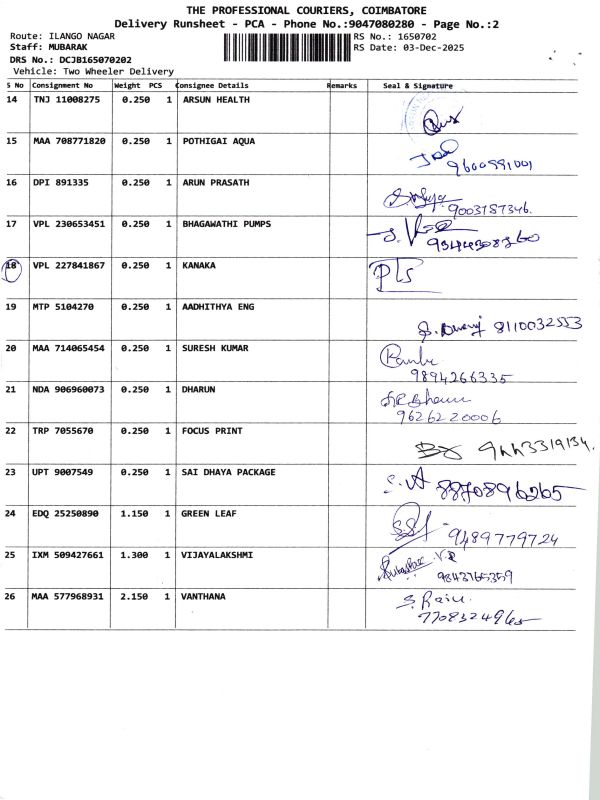 THE PROFESSIONAL COURIERS, COIMBATORE
Delivery Runsheet - PCA - Phone No.:9047080280 - Page No.:2
Route: ILANGO NAGAR RS No.: 1650702
Staff: MUBARAK RS Date: 03-Dec-2025
DRS No.: DCJB165070202
Vehicle: Two Wheeler Delivery
S No Consignment No Weight PCS Consignee Details Remarks Seal & Signature
14 TNJ 11008275 0.250 1 ARSUN HEALTH
15 MAA 708771820 0.250 1 POTHIGAI AQUA
9600991001
16 DPI 891335 0.250 1 ARUN PRASATH
9003187346.
17 VPL 230653451 0.250 1 BHAGAWATHI PUMPS
9344308760
18 VPL 227841867 0.250 1 KANAKA
19 MTP 5104270 0.250 1 AADHITHYA ENG
8110032553
20 MAA 714065454 0.250 1 SURESH KUMAR
9894266335
21 NDA 906960073 0.250 1 DHARUN
9626220006
22 TRP 7055670 0.250 1 FOCUS PRINT
23 UPT 9007549 0.250 1 SAI DHAYA PACKAGE
8870896265
24 EDQ 25250890 1.150 1 GREEN LEAF
9489779724
25 IXM 509427661 1.300 1 VIJAYALAKSHMI
9843765359
26 MAA 577968931 2.150 1 VANTHANA
7708324965